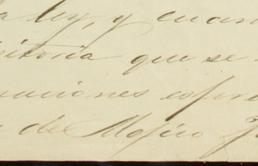 la ley, y cuan
sitoria que se
naciones espre
del Mojino